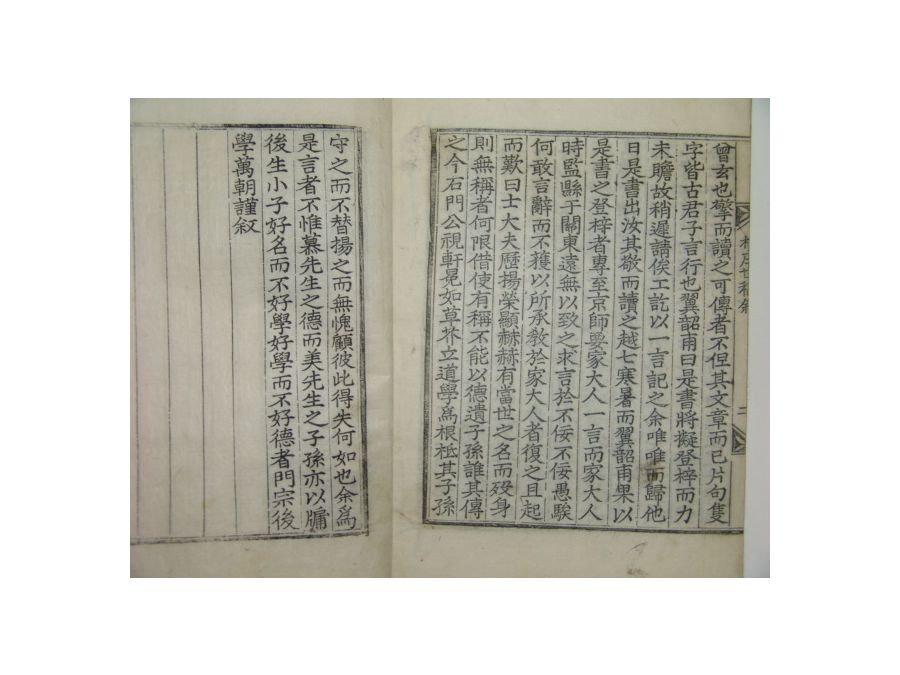 曾玄也擎而讀之可傳者不但其文章而已片句隻
字皆古君子言行也翼韶甫曰是書將擬登梓而力
未贍故稍遲請俟工訖以一言記之余唯唯而歸他
日是書出汝其敬而讀之越七寒暑而翼韶甫果以
是書之登梓者專至京師要家大人一言而家大人
時監縣于關東遠無以致之求言於不佞不佞愚騃
何敢言辭而不獲以所承敎於家大人者復之且起
而歎曰士大夫歷揚榮顯赫赫有當世之名而歿身
則無稱者何限借使有稱不能以德遺子孫誰其傳
之今石門公視軒冕如草芥立道學爲根柢其子孫
守之而不替揚之而無愧顧彼此得失何如也余爲
是言者不惟慕先生之德而美先生之子孫亦以牖
後生小子好名而不好學好學而不好德者門宗後
學萬朝謹叙